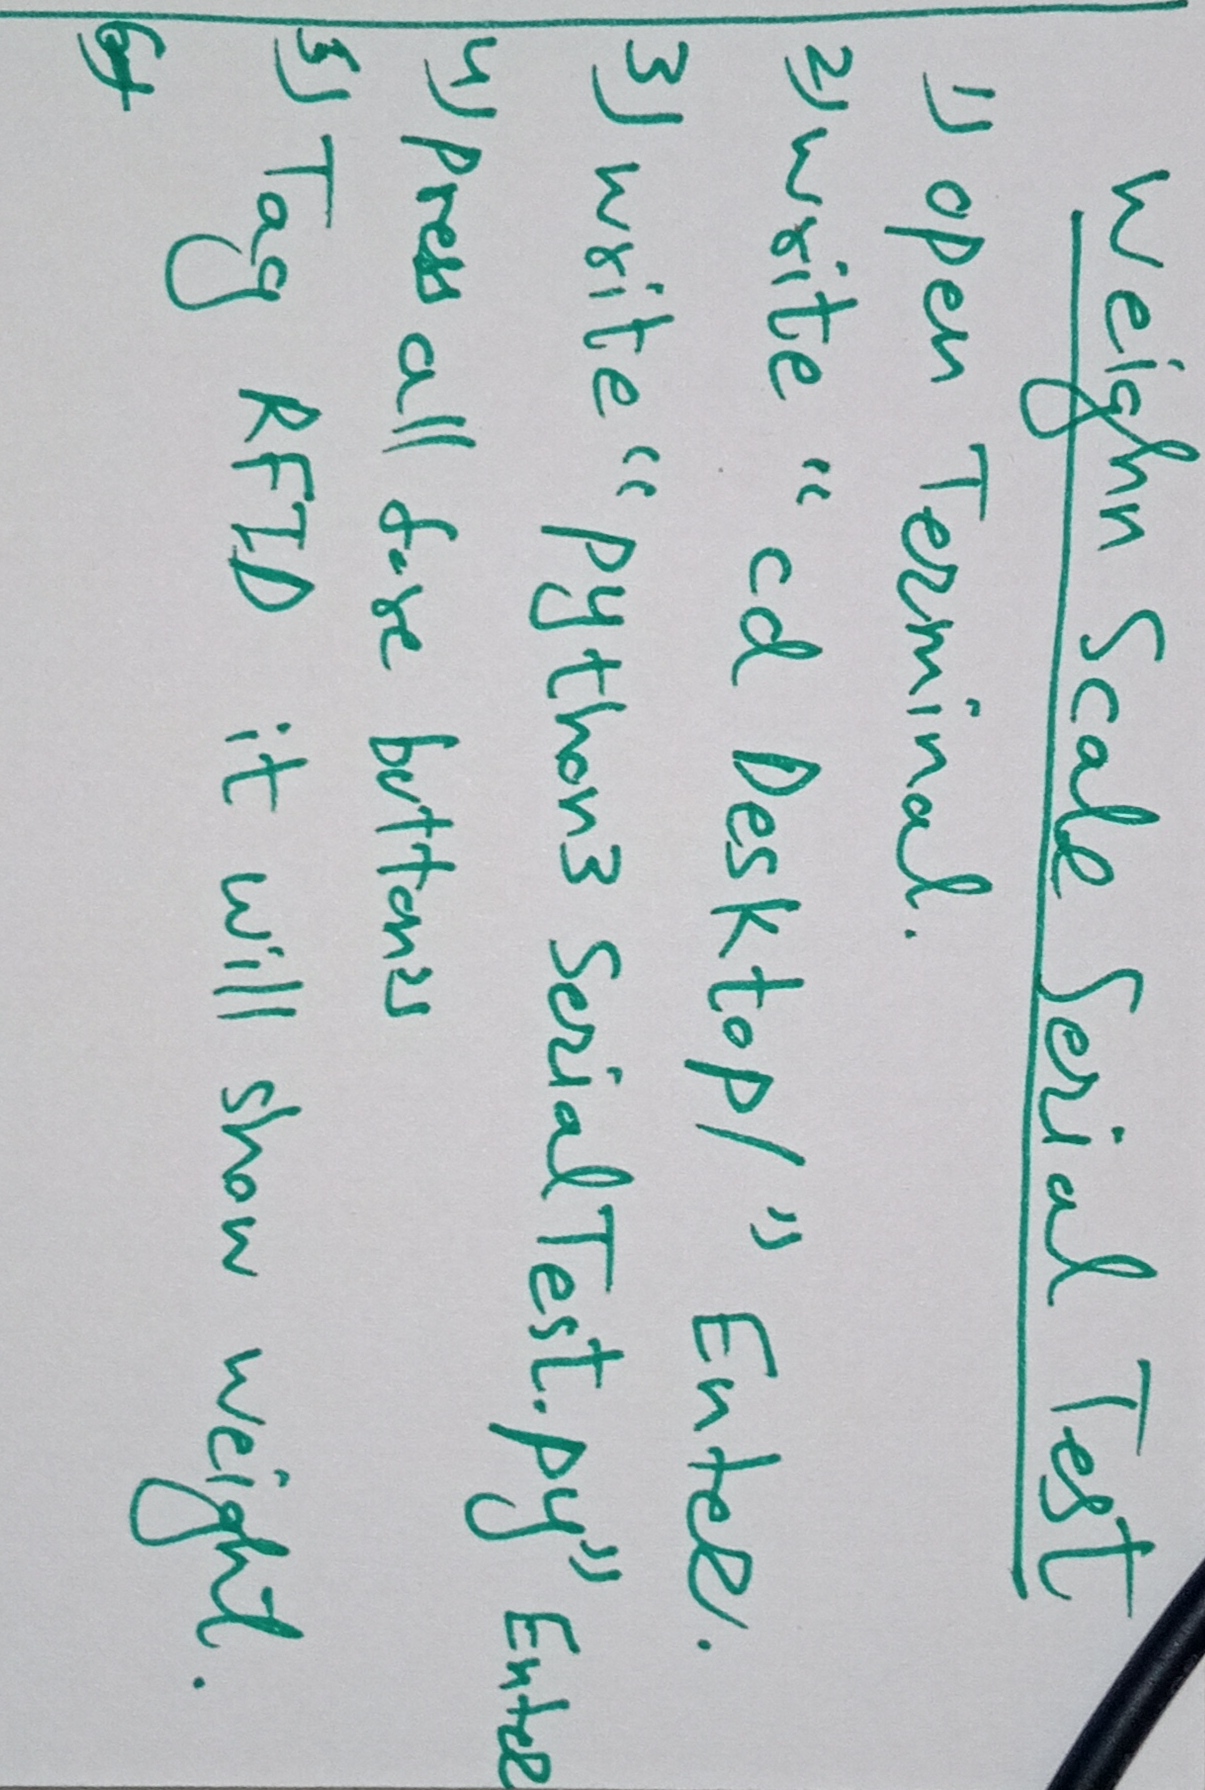 Weighn Scale Serial Test
1) open Terminal.
2) write "cd Desktop/" Enter.
3) write "python3 SerialTest.py" Enter
4) Press all fare buttons
5) Tag RFID it will show weight.